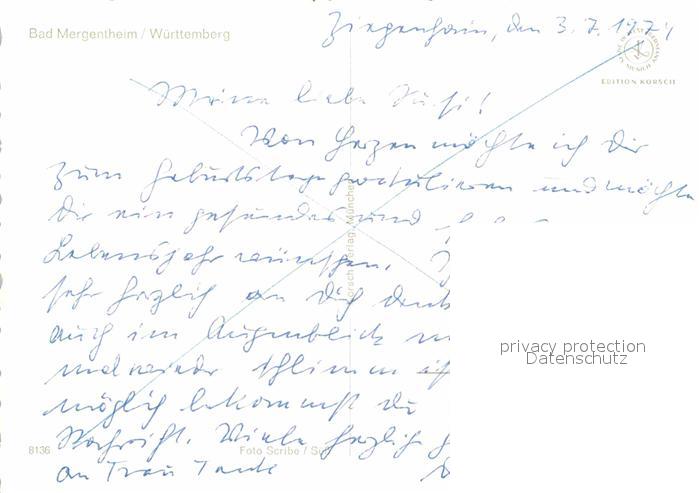 Ziegenhain, den 3.7.1974
Bad Mergentheim / Württemberg
EDITION KORSCH
Meine liebe Susi!
Von Herzen möchte ich Dir
zum Geburtstage gratulieren und möchte
Dir ein gesundes und
Lebensjahr wünschen.
sehr herzlich an Dich
auch im Augenblick
mal wieder schlimm ist
möglich bekommst Du
Nachricht. Viele herzliche
an Frau Tante
Korsch Verlag, München
8136
Foto Scribe /
privacy protection
Datenschutz